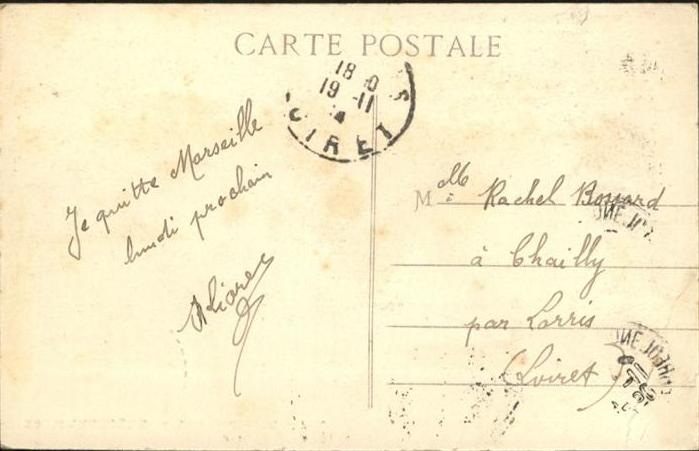 CARTE POSTALE
18 30
19 -11
LOIRET
Je quitte Marseille
lundi prochain
Mlle Rachel Bonnard
à Chailly
par Lorris
(Loiret)